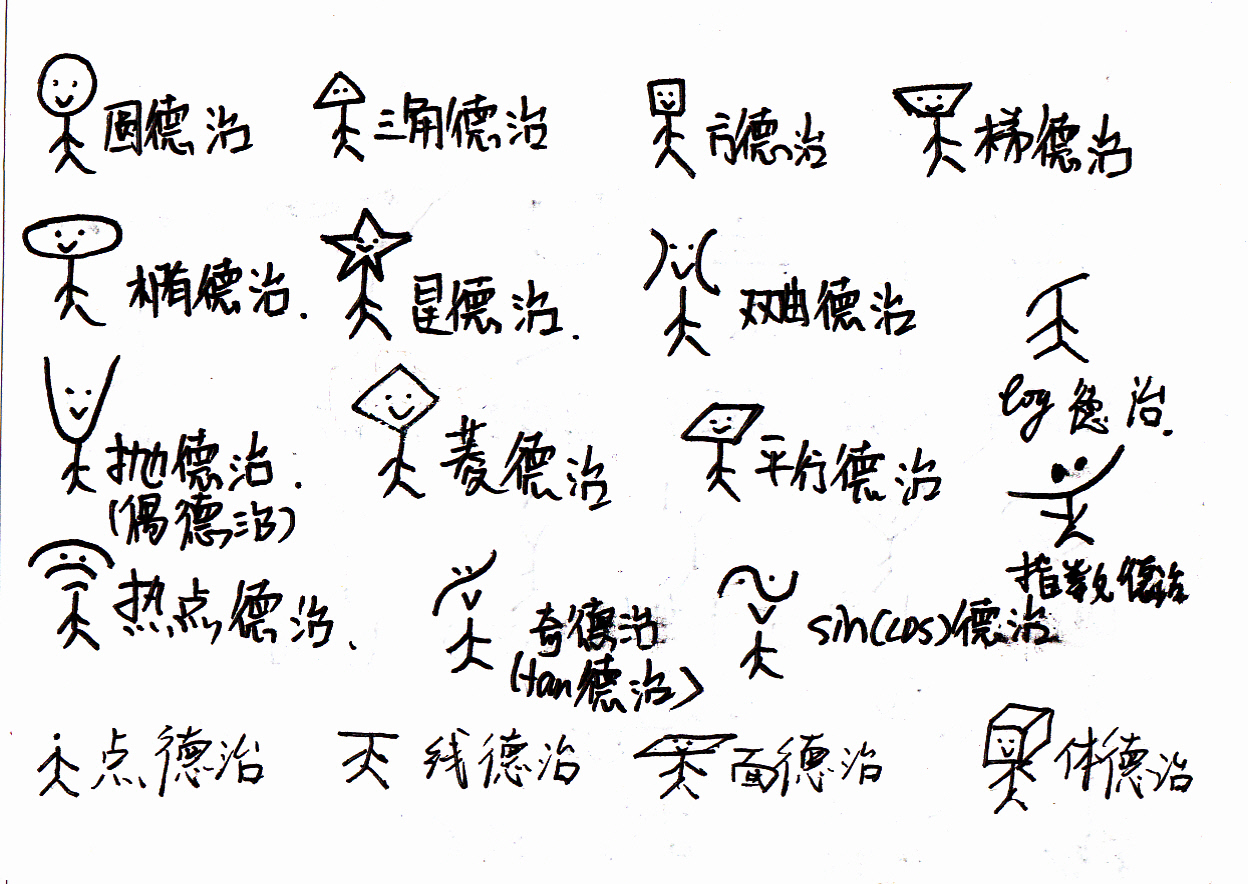 圆德治
三角德治
方德治
梯德治
椭德治.
星德治.
双曲德治
log德治.
抛德治.
(偶德治)
菱德治
平行德治
指数德治
热点德治.
奇德治
(tan德治)
sin(cos)德治
点德治
线德治
面德治
体德治